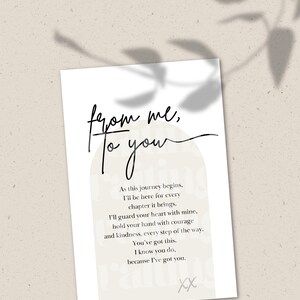 from me,
to you
As this journey begins,
I'll be here for every
chapter it brings.
I'll guard your heart with mine,
hold your hand with courage
and kindness, every step of the way.
You've got this.
I know you do,
because I've got you.
XX